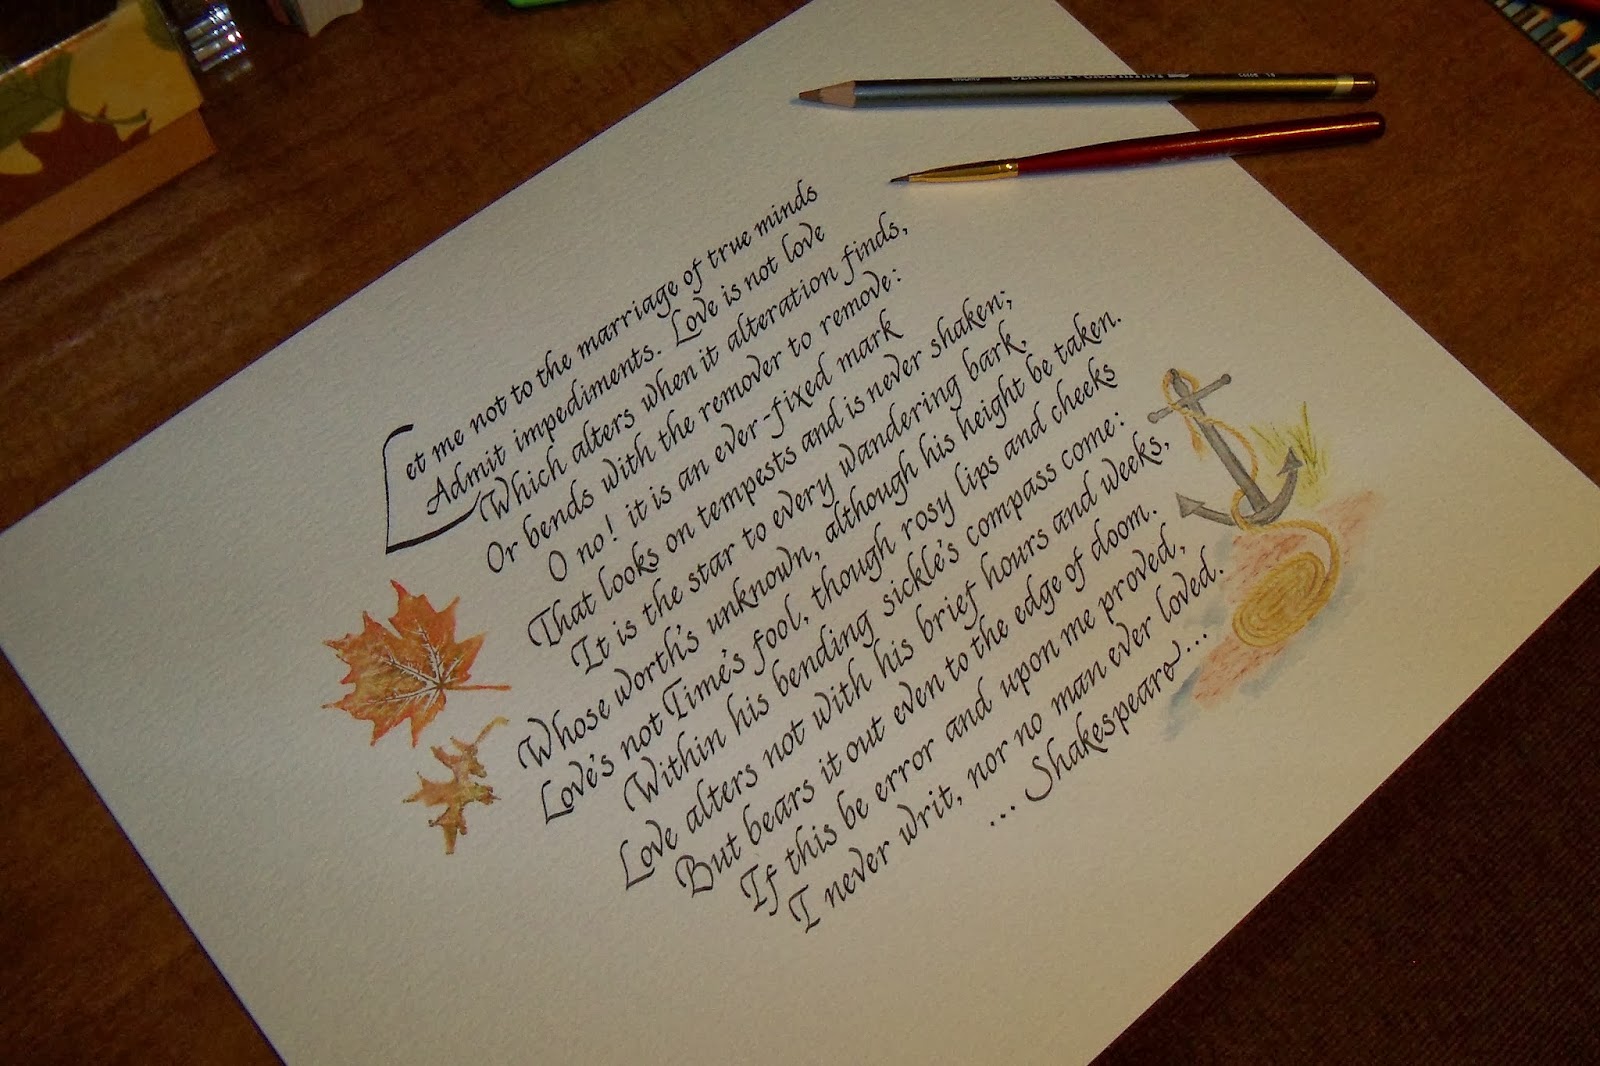 Let me not to the marriage of true minds
Admit impediments. Love is not love
Which alters when it alteration finds,
Or bends with the remover to remove:
O no! it is an ever-fixed mark
That looks on tempests and is never shaken;
It is the star to every wandering bark,
Whose worth's unknown, although his height be taken.
Love's not Time's fool, though rosy lips and cheeks
Within his bending sickle's compass come:
Love alters not with his brief hours and weeks,
But bears it out even to the edge of doom.
If this be error and upon me proved,
I never writ, nor no man ever loved.
... Shakespeare ...